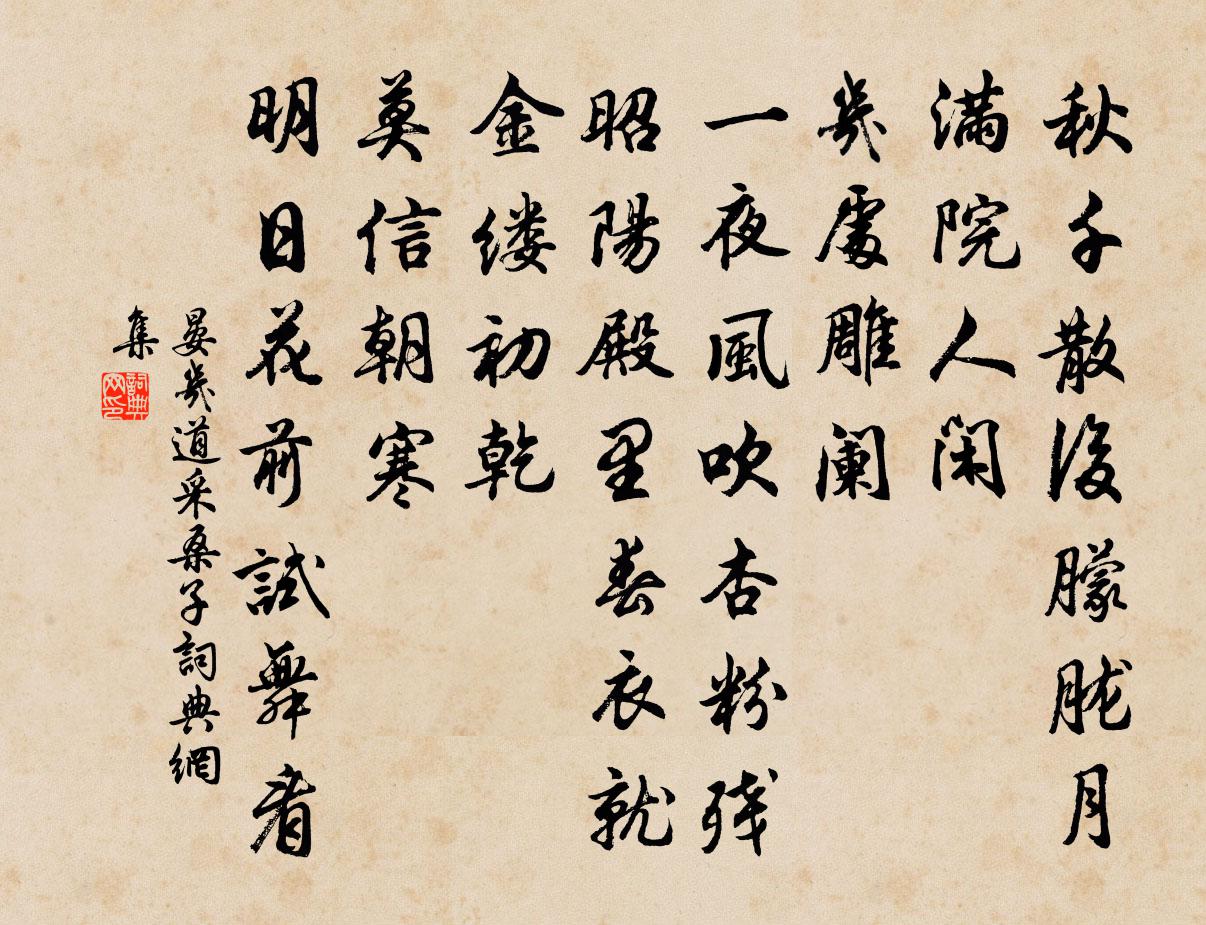 秋千散後朦胧月
满院人闲
幾處雕阑
一夜風吹杏粉残
昭陽殿里春衣就
金缕初乾
莫信朝寒
明日花前試舞看
晏幾道采桑子詞典網
集
詞典
网印